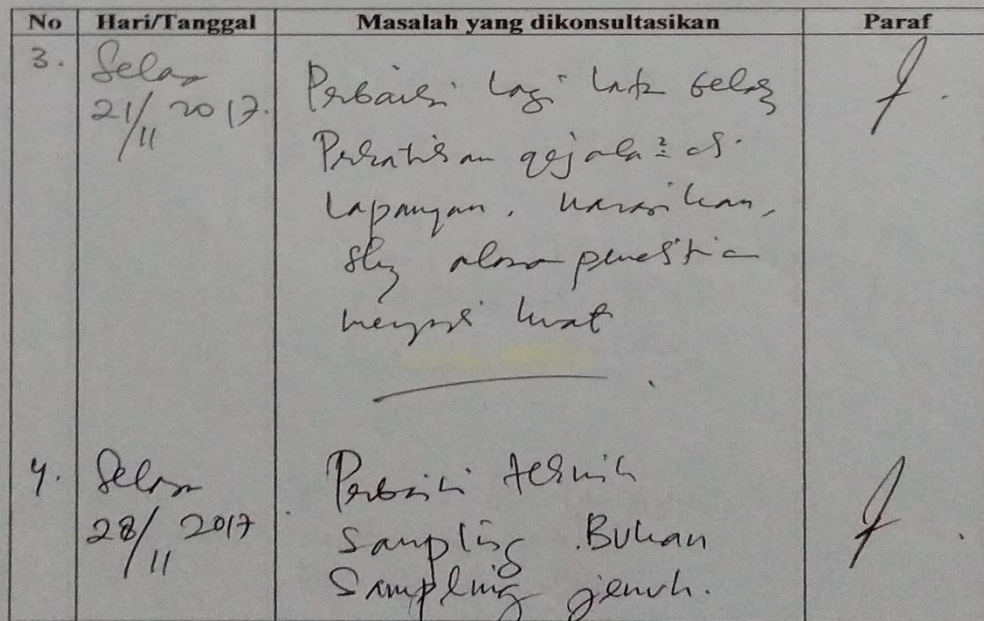 No Hari/Tanggal Masalah yang dikonsultasikan Paraf
3. Selasa Perbaiki lagi latar belakang
21/11 2017. Perhatikan gejala² di
lapangan, uraikan,
shg alasan penelitian
menjadi kuat
4. Selasa Perbaiki teknik
28/11 2017 sampling. Bukan
Sampling jenuh.